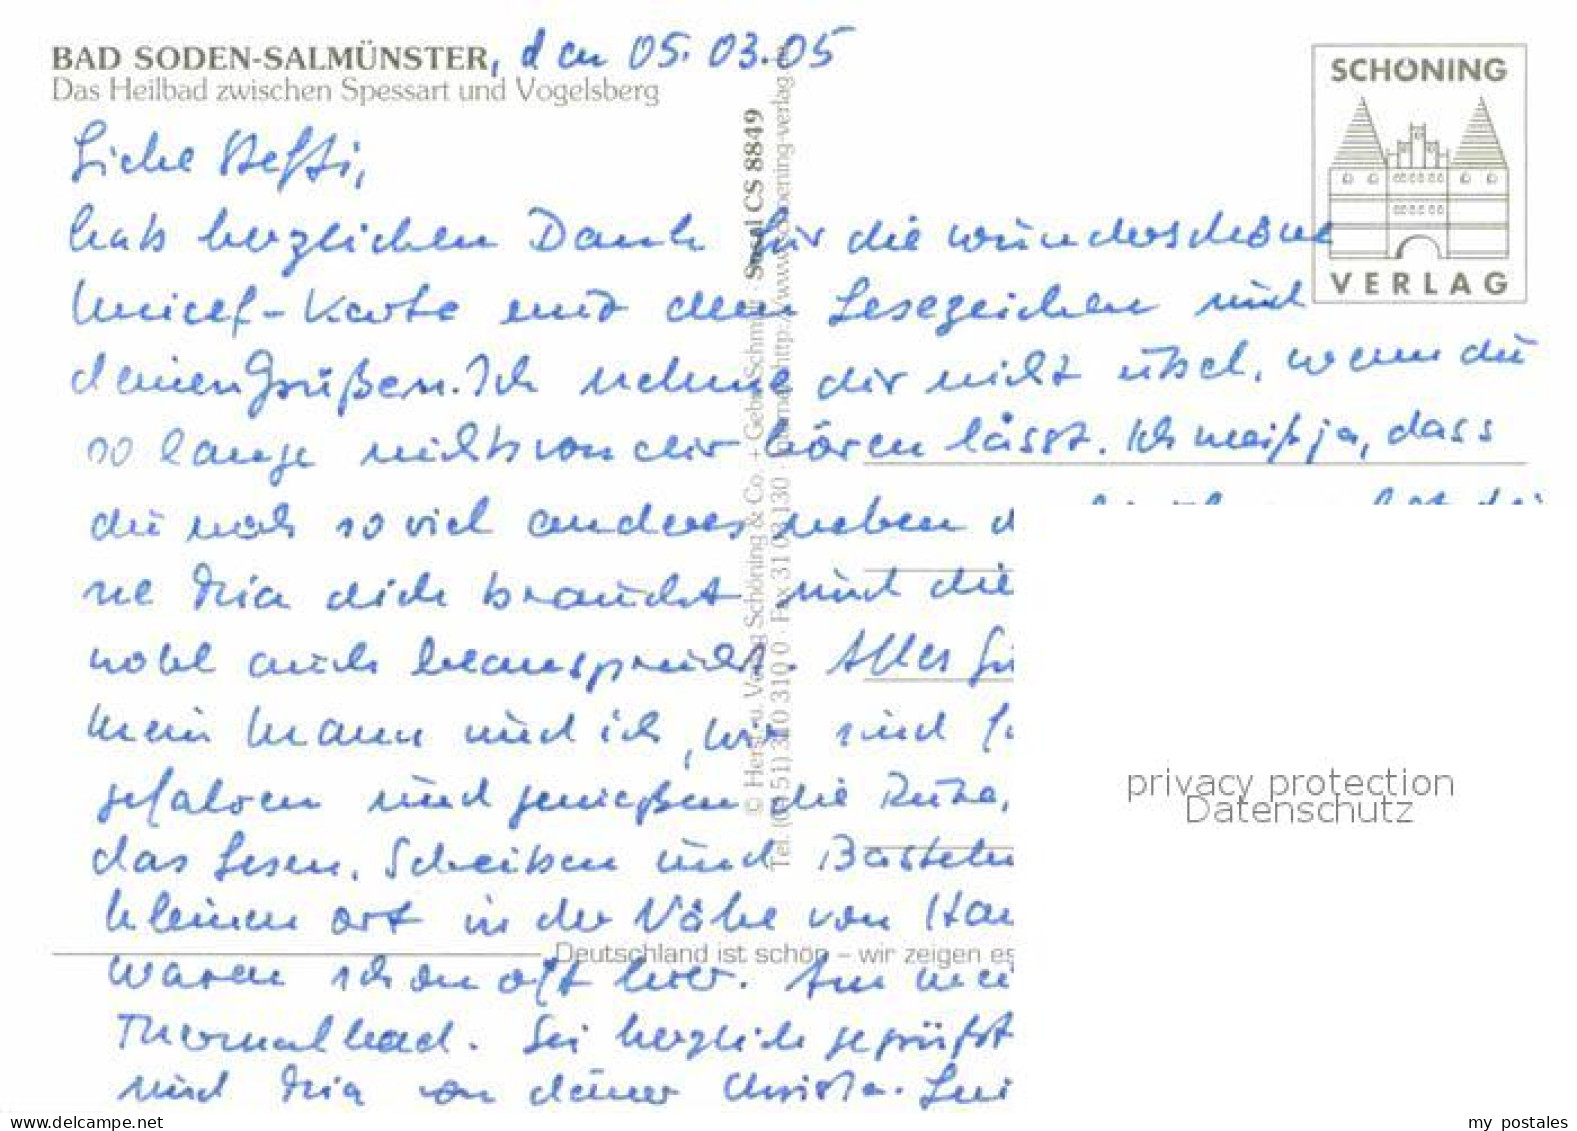 BAD SODEN-SALMÜNSTER, den 05.03.05
Das Heilbad zwischen Spessart und Vogelsberg
SCHÖNING
VERLAG
Liebe Steffi,
hab herzlichen Dank für die wunderschöne
Unicef-Karte und dem Lesezeichen und
deinen Grüßen. Ich nehme dir nicht übel, wenn du
so lange nichts von dir hören lässt. Ich weiß ja, dass
du noch so viel anderes neben
ne Mia dich braucht und die
wohl auch beansprucht. Alles
Mein Mann und ich, wir sind
gefahren und genießen die Ruhe,
das Lesen, Schreiben und Basteln
kleinen Ort in der Nähe von
waren schon oft hier. Am
Thermalbad. Sei herzlich gegrüßt
und Mia von deiner Christa.
© Herst. u. Verlag Schöning & Co. + Gebr. Schmidt · Social CS 8849
Tel. (0451) 310 310 · Fax 31 03 130
Deutschland ist schön – wir zeigen es
privacy protection
Datenschutz
delcampe.net
my postales